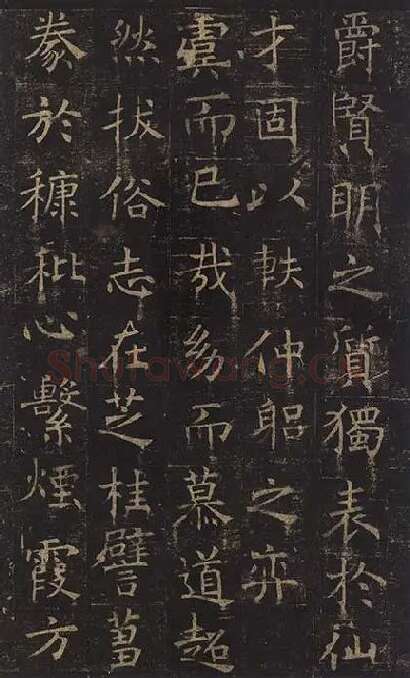 爵賢明之質獨表於仙
才固以軼仲躳之弈
虞而已哉幼而慕道超
然拔俗志在芝桂譬蒭
豢於糠秕心繫煙霞方